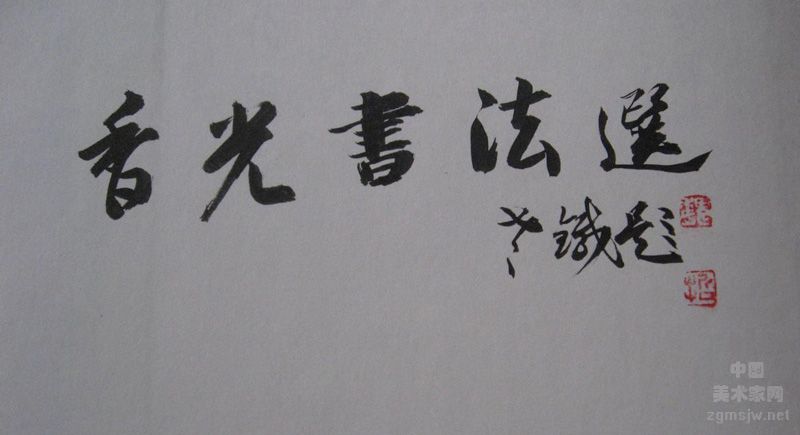 香光書法選
老鐵題
中国
美术家网
zgmsjw.net